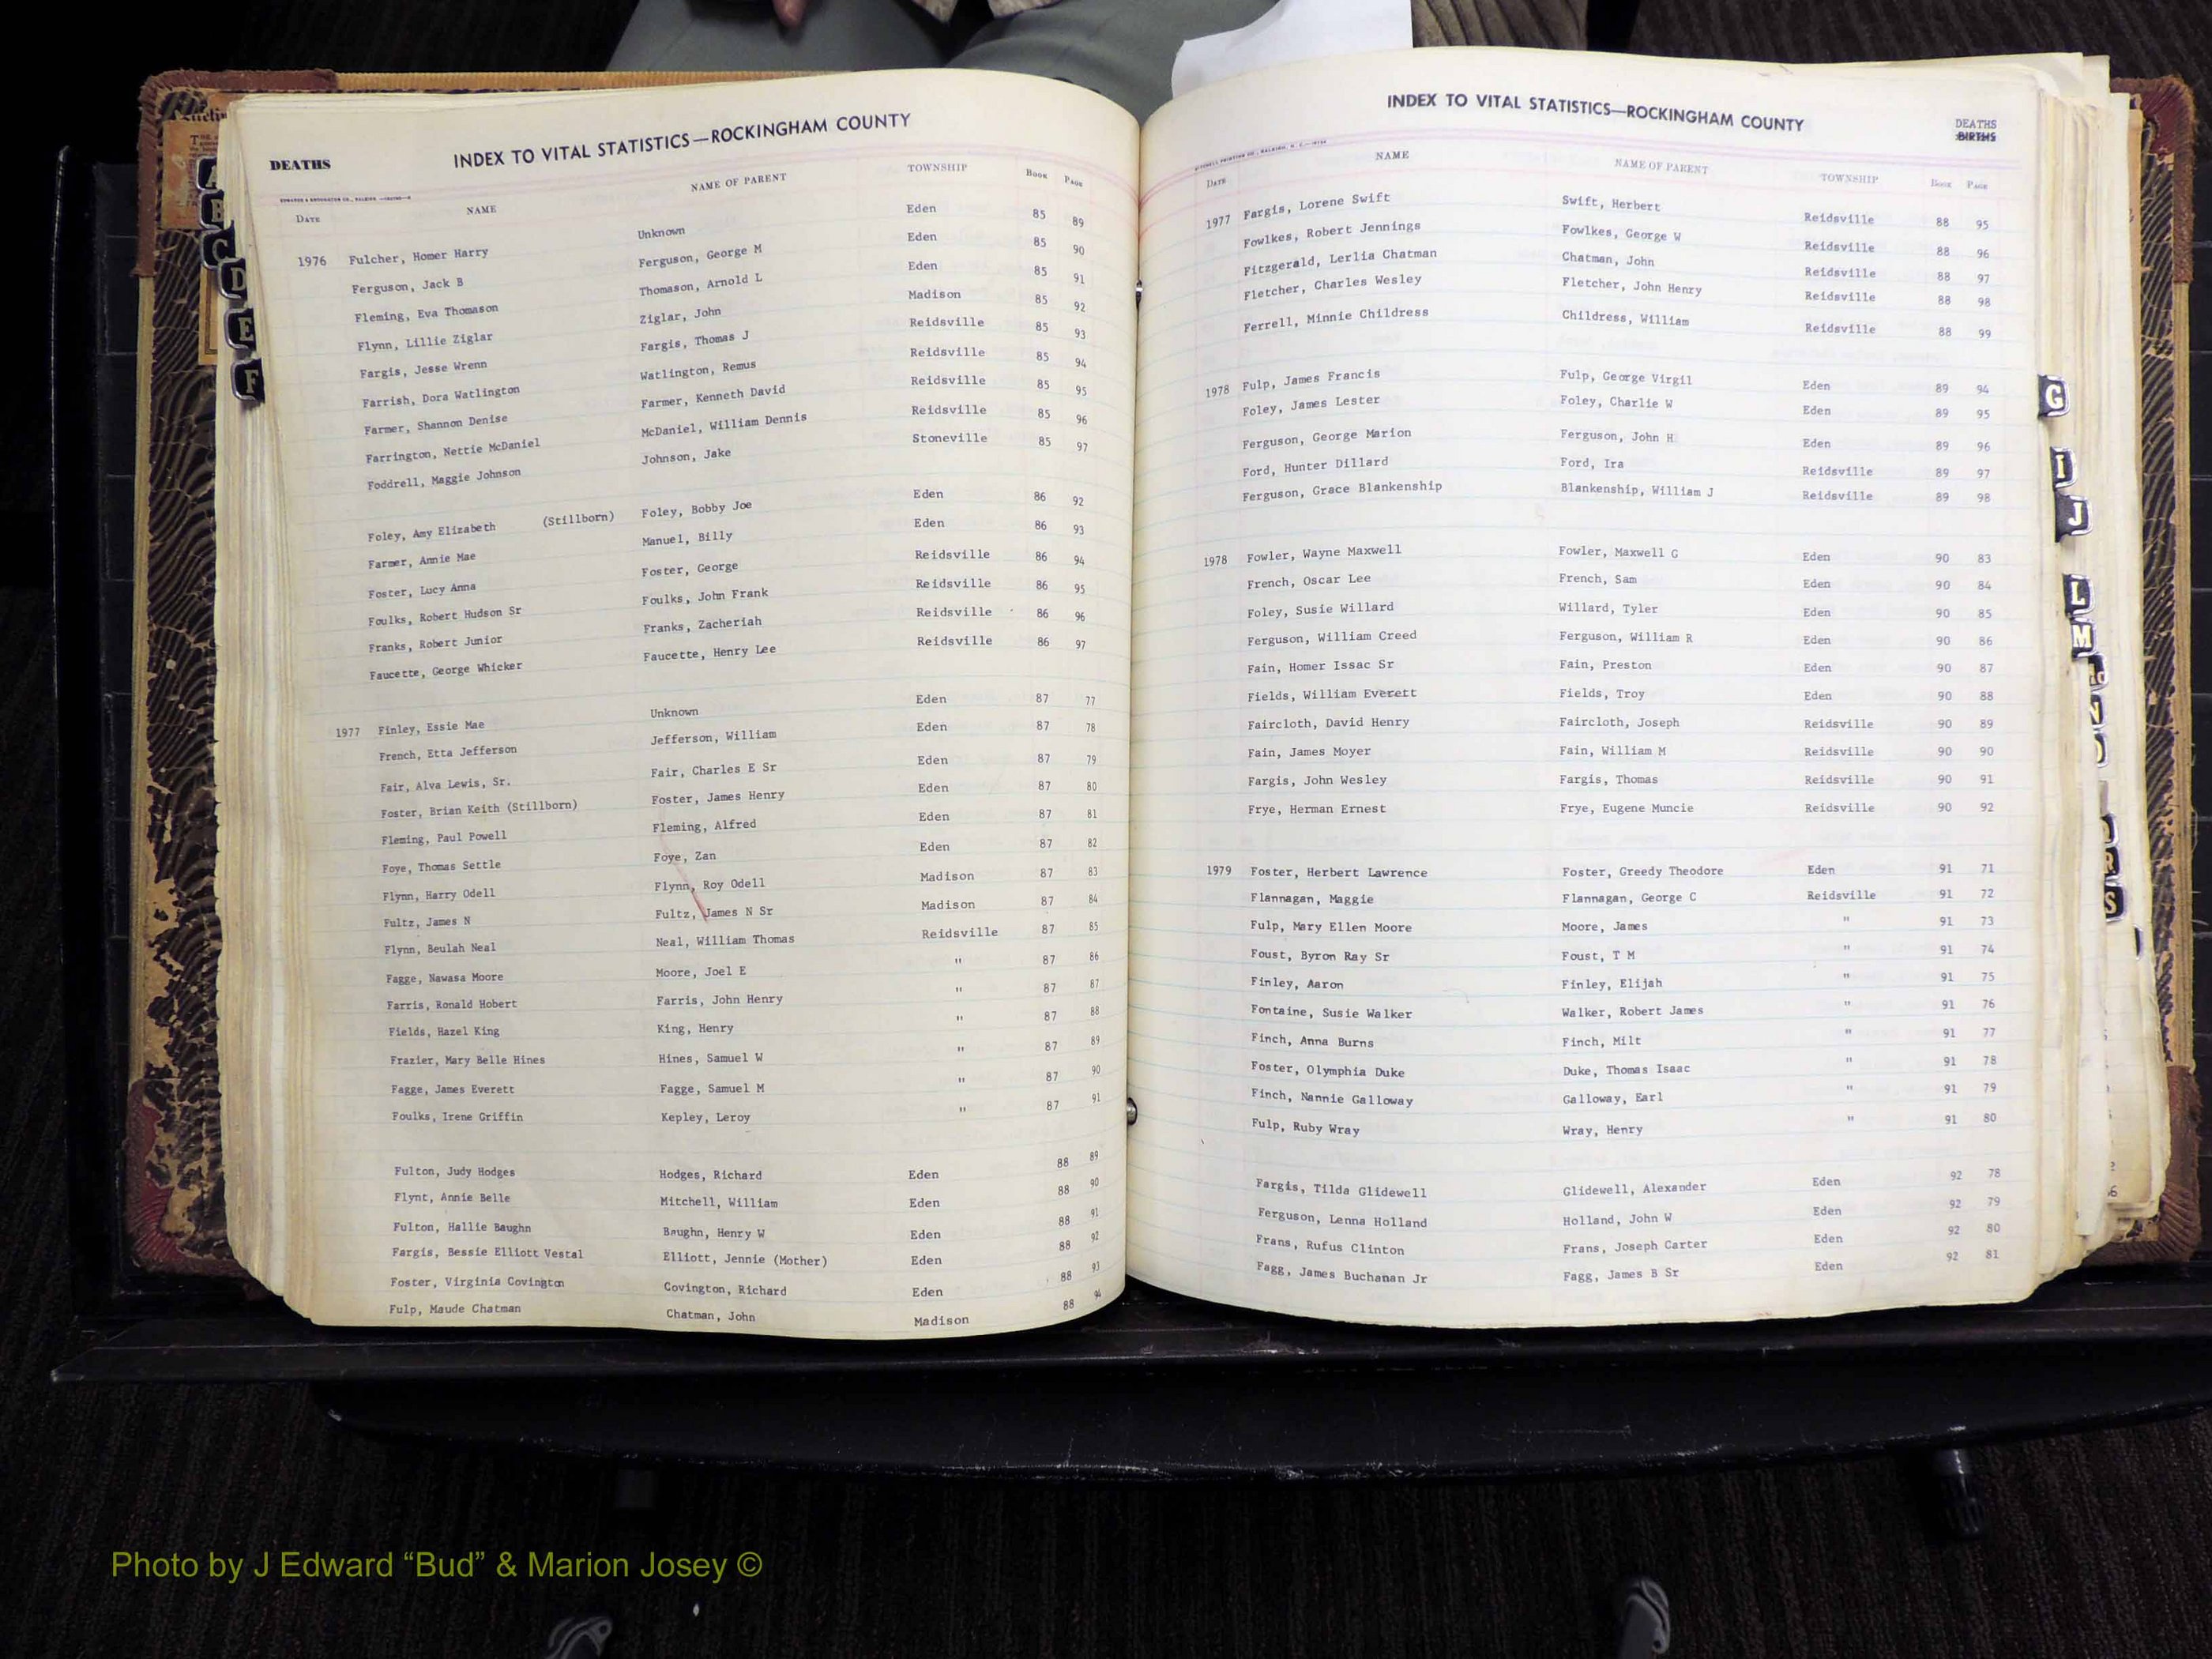 INDEX TO VITAL STATISTICS—ROCKINGHAM COUNTY
DEATHS
DATE NAME NAME OF PARENT TOWNSHIP BOOK PAGE
1976 Fulcher, Homer Harry Unknown Eden 85 89
Ferguson, Jack B Ferguson, George M Eden 85 90
Fleming, Eva Thomason Thomason, Arnold L Eden 85 91
Flynn, Lillie Ziglar Ziglar, John Madison 85 92
Fargis, Jesse Wrenn Fargis, Thomas J Reidsville 85 93
Farrish, Dora Watlington Watlington, Remus Reidsville 85 94
Farmer, Shannon Denise Farmer, Kenneth David Reidsville 85 95
Farrington, Nettie McDaniel McDaniel, William Dennis Reidsville 85 96
Foddrell, Maggie Johnson Johnson, Jake Stoneville 85 97
Foley, Amy Elizabeth (Stillborn) Foley, Bobby Joe Eden 86 92
Farmer, Annie Mae Manuel, Billy Eden 86 93
Foster, Lucy Anna Foster, George Reidsville 86 94
Foulks, Robert Hudson Sr Foulks, John Frank Reidsville 86 95
Franks, Robert Junior Franks, Zacheriah Reidsville 86 96
Faucette, George Whicker Faucette, Henry Lee Reidsville 86 97
1977 Finley, Essie Mae Unknown Eden 87 77
French, Etta Jefferson Jefferson, William Eden 87 78
Fair, Alva Lewis, Sr. Fair, Charles E Sr Eden 87 79
Foster, Brian Keith (Stillborn) Foster, James Henry Eden 87 80
Fleming, Paul Powell Fleming, Alfred Eden 87 81
Foye, Thomas Settle Foye, Zan Eden 87 82
Flynn, Harry Odell Flynn, Roy Odell Madison 87 83
Fultz, James N Fultz, James N Sr Madison 87 84
Flynn, Beulah Neal Neal, William Thomas Reidsville 87 85
Fagge, Nawasa Moore Moore, Joel E " 87 86
Farris, Ronald Hobert Farris, John Henry " 87 87
Fields, Hazel King King, Henry " 87 88
Frazier, Mary Belle Hines Hines, Samuel W " 87 89
Fagge, James Everett Fagge, Samuel M " 87 90
Foulks, Irene Griffin Kepley, Leroy " 87 91
Fulton, Judy Hodges Hodges, Richard Eden 88 89
Flynt, Annie Belle Mitchell, William Eden 88 90
Fulton, Hallie Baughn Baughn, Henry W Eden 88 91
Fargis, Bessie Elliott Vestal Elliott, Jennie (Mother) Eden 88 92
Foster, Virginia Covington Covington, Richard Eden 88 93
Fulp, Maude Chatman Chatman, John Madison 88 94
INDEX TO VITAL STATISTICS—ROCKINGHAM COUNTY
DEATHS
BIRTHS
DATE NAME NAME OF PARENT TOWNSHIP BOOK PAGE
1977 Fargis, Lorene Swift Swift, Herbert Reidsville 88 95
Fowlkes, Robert Jennings Fowlkes, George W Reidsville 88 96
Fitzgerald, Lerlia Chatman Chatman, John Reidsville 88 97
Fletcher, Charles Wesley Fletcher, John Henry Reidsville 88 98
Ferrell, Minnie Childress Childress, William Reidsville 88 99
1978 Fulp, James Francis Fulp, George Virgil Eden 89 94
Foley, James Lester Foley, Charlie W Eden 89 95
Ferguson, George Marion Ferguson, John H Eden 89 96
Ford, Hunter Dillard Ford, Ira Reidsville 89 97
Ferguson, Grace Blankenship Blankenship, William J Reidsville 89 98
1978 Fowler, Wayne Maxwell Fowler, Maxwell G Eden 90 83
French, Oscar Lee French, Sam Eden 90 84
Foley, Susie Willard Willard, Tyler Eden 90 85
Ferguson, William Creed Ferguson, William R Eden 90 86
Fain, Homer Issac Sr Fain, Preston Eden 90 87
Fields, William Everett Fields, Troy Eden 90 88
Faircloth, David Henry Faircloth, Joseph Reidsville 90 89
Fain, James Moyer Fain, William M Reidsville 90 90
Fargis, John Wesley Fargis, Thomas Reidsville 90 91
Frye, Herman Ernest Frye, Eugene Muncie Reidsville 90 92
1979 Foster, Herbert Lawrence Foster, Greedy Theodore Eden 91 71
Flannagan, Maggie Flannagan, George C Reidsville 91 72
Fulp, Mary Ellen Moore Moore, James " 91 73
Foust, Byron Ray Sr Foust, T M " 91 74
Finley, Aaron Finley, Elijah " 91 75
Fontaine, Susie Walker Walker, Robert James " 91 76
Finch, Anna Burns Finch, Milt " 91 77
Foster, Olymphia Duke Duke, Thomas Isaac " 91 78
Finch, Nannie Galloway Galloway, Earl " 91 79
Fulp, Ruby Wray Wray, Henry " 91 80
Fargis, Tilda Glidewell Glidewell, Alexander Eden 92 78
Ferguson, Lenna Holland Holland, John W Eden 92 79
Frans, Rufus Clinton Frans, Joseph Carter Eden 92 80
Fagg, James Buchanan Jr Fagg, James B Sr Eden 92 81
A
B
C
D
E
F
G
I
J
L
M
N
R
S
Photo by J Edward “Bud” & Marion Josey ©